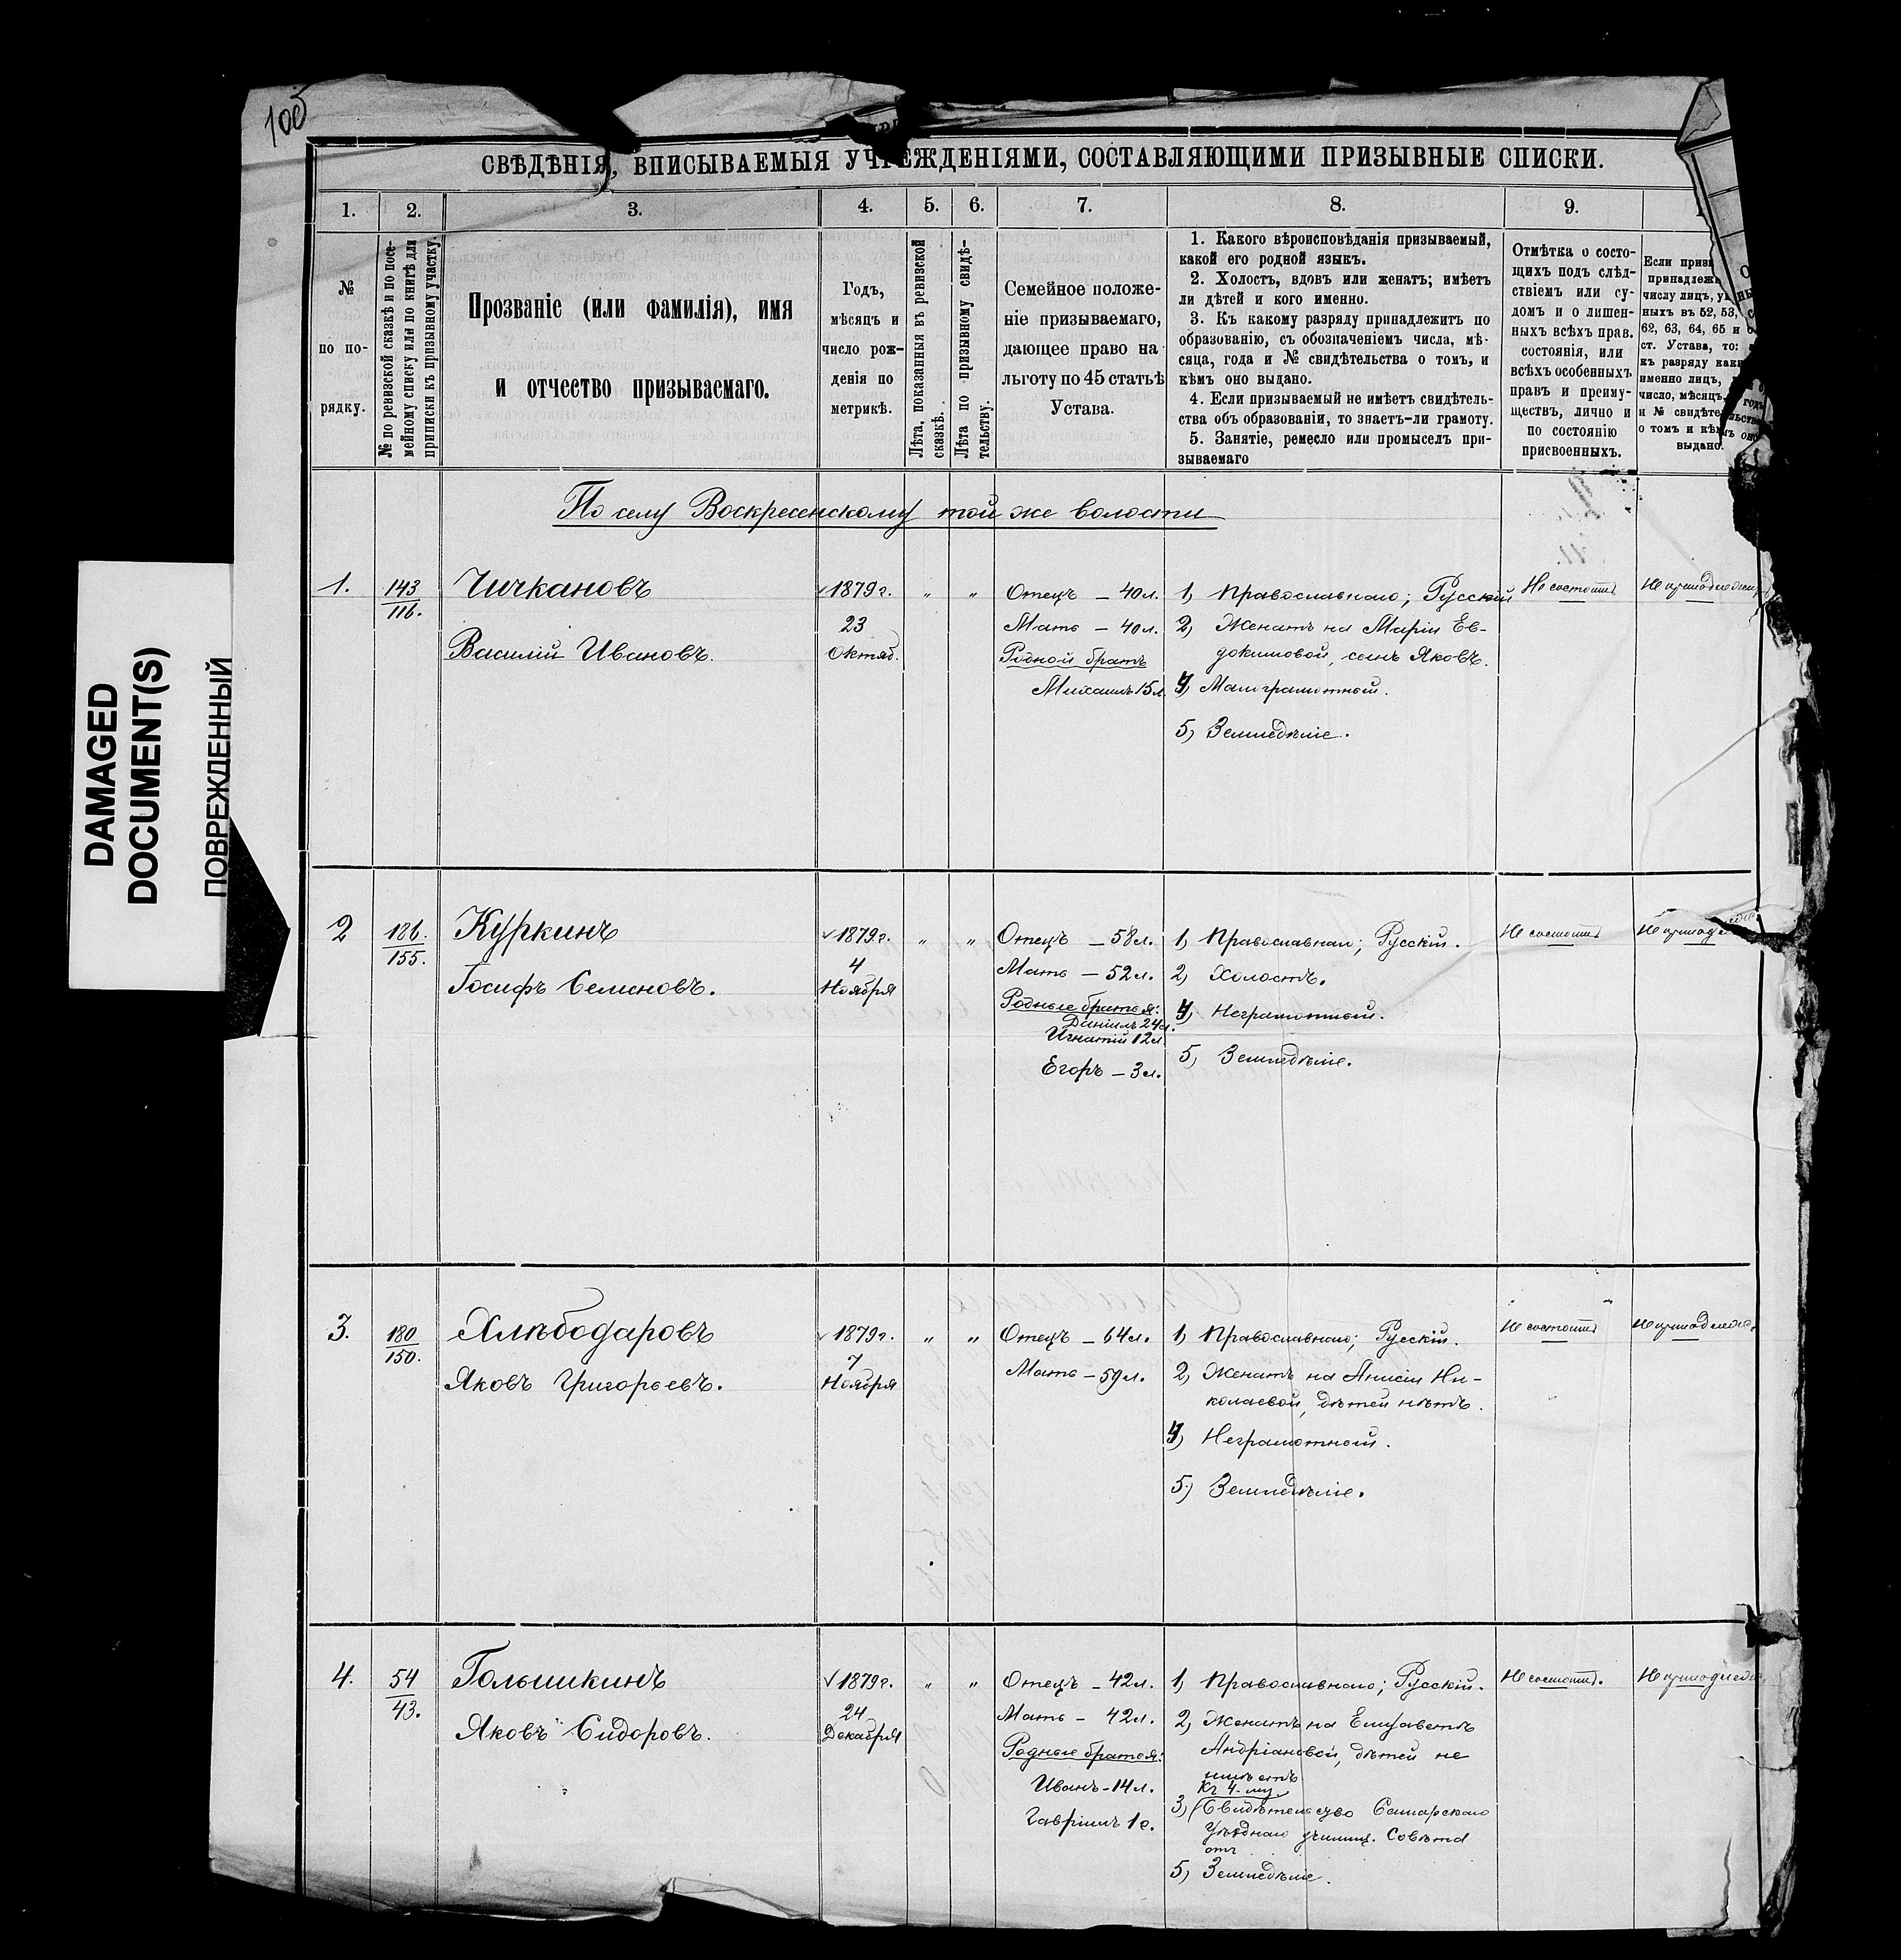 100
DAMAGED
DOCUMENT(S)
ПОВРЕЖДЕННЫЙ
СВѢДѢНІЯ, ВПИСЫВАЕМЫЯ УЧРЕЖДЕНІЯМИ, СОСТАВЛЯЮЩИМИ ПРИЗЫВНЫЕ СПИСКИ.
1. 2. 3. 4. 5. 6. 7. 8. 9.
№
по по-
рядку.
№ по ревизской сказкѣ и по посе-
мейному списку или по книгѣ для
приписки къ призывному участку.
Прозваніе (или фамилія), имя
и отчество призываемаго.
Годъ,
мѣсяцъ и
число рож-
денія по
метрикѣ.
Лѣта, показанныя въ ревизской
сказкѣ.
Лѣта по призывному свидѣ-
тельству.
Семейное положе-
ніе призываемаго,
дающее право на
льготу по 45 статьѣ
Устава.
1. Какого вѣроисповѣданія призываемый,
какой его родной языкъ.
2. Холостъ, вдовъ или женатъ; имѣетъ
ли дѣтей и кого именно.
3. Къ какому разряду принадлежитъ по
образованію, съ обозначеніемъ числа, мѣ-
сяца, года и № свидѣтельства о томъ, и
кѣмъ оно выдано.
4. Если призываемый не имѣетъ свидѣтель-
ства объ образованіи, то знаетъ-ли грамоту.
5. Занятіе, ремесло или промыселъ при-
зываемаго
Отмѣтка о состо-
ящихъ подъ слѣд-
ствіемъ или су-
домъ и о лишен-
ныхъ всѣхъ прав.
состоянія, или
всѣхъ особенныхъ
правъ и преиму-
ществъ, лично и
по состоянію
присвоенныхъ.
Если призы
принадлеж
числу лицъ, ук
ныхъ въ 52, 53,
62, 63, 64, 65 и
ст. Устава, то:
къ разряду как
именно лицъ,
число, мѣсяцъ,
и № свидѣте
о томъ и кѣмъ
выдано.
По селу Воскресенскому той же волости
1.
143
116.
Чичкановъ
Василій Ивановъ.
1879 г.
23
Октяб.
„ „
Отецъ – 40 л.
Мать – 40 л.
Родной братъ
Михаилъ 15 л.
1, Православнаго; Русскій
2, Женатъ на Маріи Ев-
докимовой, сынъ Яковъ.
4, Малограмотный.
5, Земледѣліе.
Не состоитъ
Не принадлежитъ
2
186.
155.
Куркинъ
Іосифъ Семеновъ.
1879 г.
4
Ноября
„ „
Отецъ – 58 л.
Мать – 52 л.
Родные братья:
Даніилъ 24 л.
Игнатій 12 л.
Егоръ – 3 л.
1, Православнаго; Русскій.
2, Холостъ.
4, Неграмотный.
5, Земледѣліе.
Не состоитъ
3.
180
150.
Хлѣбодаровъ
Яковъ Григорьевъ.
1879 г.
7
Ноября
„ „
Отецъ – 64 л.
Мать – 59 л.
1, Православнаго; Русскій.
2, Женатъ на Анисіи Ни-
колаевой, дѣтей нѣтъ.
4, Неграмотный.
5, Земледѣліе.
Не состоитъ
4.
54
43.
Голышкинъ
Яковъ Сидоровъ.
1879 г.
24
Декабря
„ „
Отецъ – 42 л.
Мать – 42 л.
Родные братья:
Иванъ – 14 л.
Гавріилъ 1 г.
1, Православнаго; Русскій.
2, Женатъ на Елизаветѣ
Андріановой, дѣтей не
имѣетъ
Къ 4-му
3, Свидѣтельство Самарскаго
Уѣзднаго училищ. Совѣта
отъ
5, Земледѣліе.
Не состоитъ.